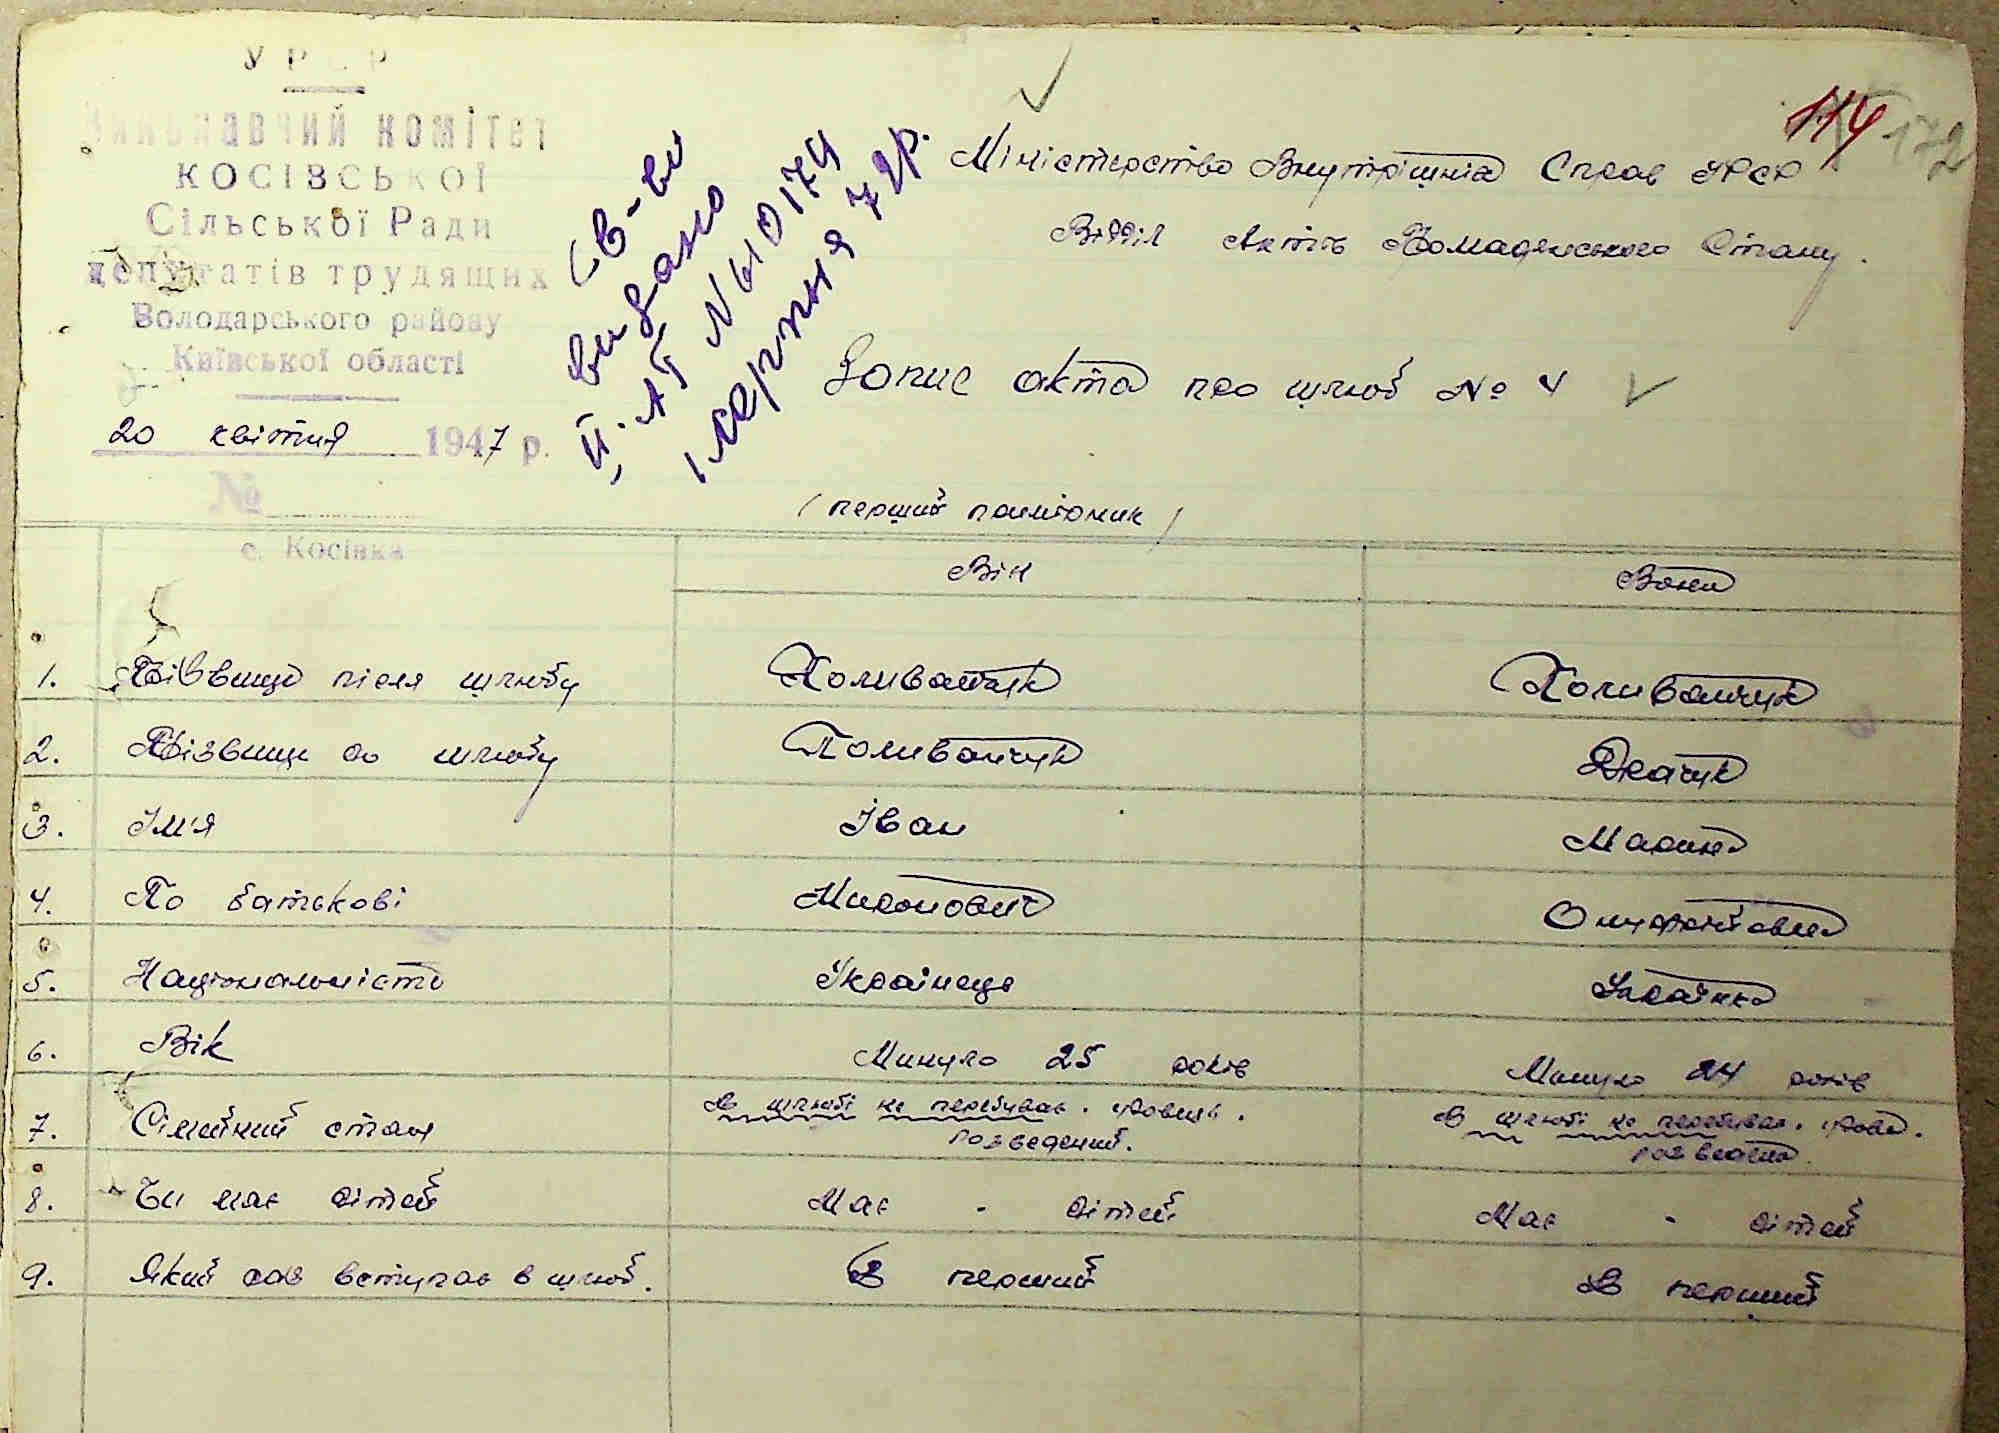 У Р С Р
Виконавчий комітет
КОСІВСЬКОЇ
Сільської Ради
депутатів трудящих
Володарського району
Київської області
20 квітня 1947 р.
№
с. Косівка
Св-во
видано
ІІ-АГ N 610174
1 серпня 72р.
114 172
Міністерство Внутрішніх Справ УРСР
Відділ Актів Громадянського Стану.
Запис акта про шлюб № 4
(перший примірник)
Він Вона
1. Прізвище після шлюбу Поливанчук Поливанчук
2. Прізвище до шлюбу Поливанчук Драчук
3. Ім'я Іван Марина
4. По батькові Миронович Онуфріївна
5. Національність Українець Українка
6. Вік Минуло 25 років Минуло 24 років
7. Сімейний стан В шлюбі не перебував. удовець. розведений. В шлюбі не перебував. удова. розведена.
8. Чи має дітей Має - дітей Має - дітей
9. Який раз вступає в шлюб. В перший В перший